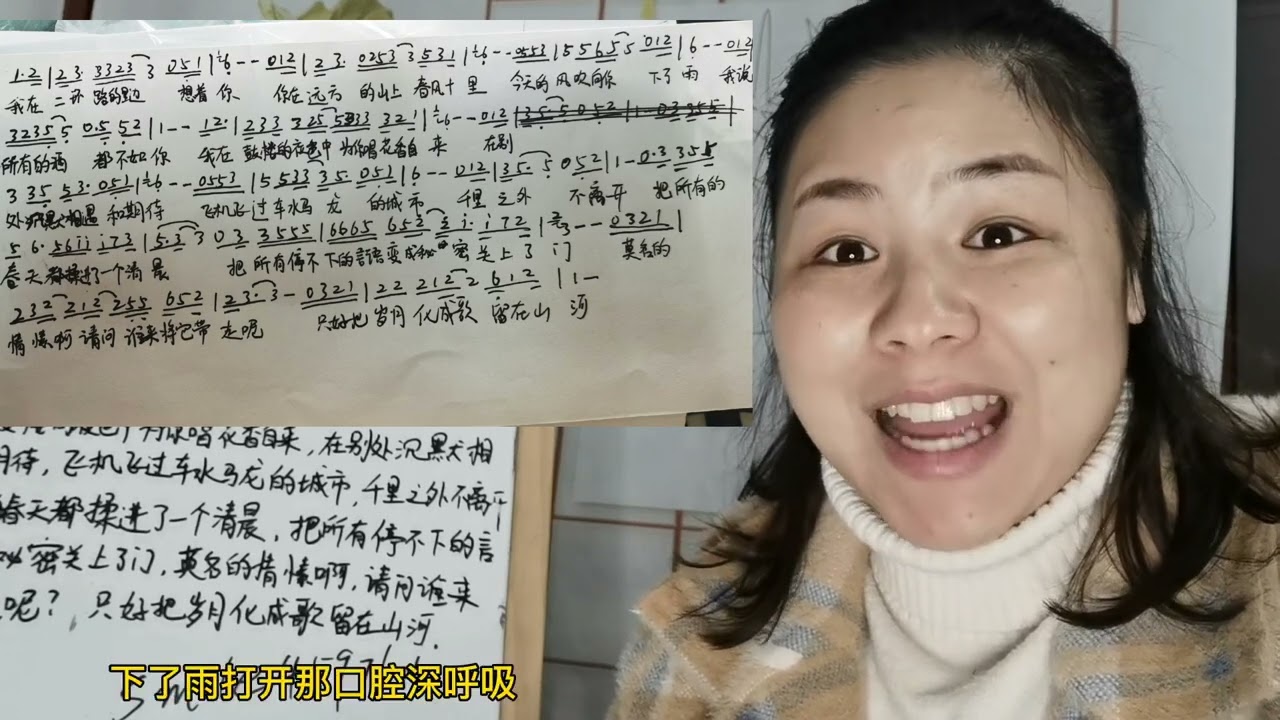 1·2 | 2 3· 3323 3 051 | 6 - - 012 | 2 3· 0253 3 531 | 6 - - 0553 | 5 565 5 012 | 6 - - 012
我在 二环 路的里边 想着你 你在远方 的山上 春风十里 今天的风吹向你 下了雨 我说
3235 5 0·5 52 | 1 - - 12· | 233 325 533 321 | 6 - - 012
所有的酒 都不如你 我在 鼓楼的夜色中 为你唱花香自来 在别
3 35 53· 051 | 6 - - 0553 | 5 533 35· 051 | 6 - - 012 | 35· 5 052 | 1 - 0·3 355
处沉默相遇 和期待 飞机飞过车水马龙 的城市 千里之外 不离开 把所有的
5 6· 56ii i73 | 5·3 3 03 3555 | 6665 652 2 i· i72 | 3 - - - 0321 |
春天都揉进了一个清晨 把所有停不下的言语变成秘密关上了门 莫名的
232 212 255 652 | 23· 3 - 0321 | 22 212 2 612 | 1 -
情愫啊请问谁来将它带走呢 只好把岁月化成歌 留在山河
夜色中为你唱花香自来，在别处沉默相
期待，飞机飞过车水马龙的城市，千里之外不离开
春天都揉进了一个清晨，把所有停不下的言
秘密关上了门，莫名的情愫啊，请问谁来
呢？只好把岁月化成歌留在山河.
下了雨打开那口腔深呼吸